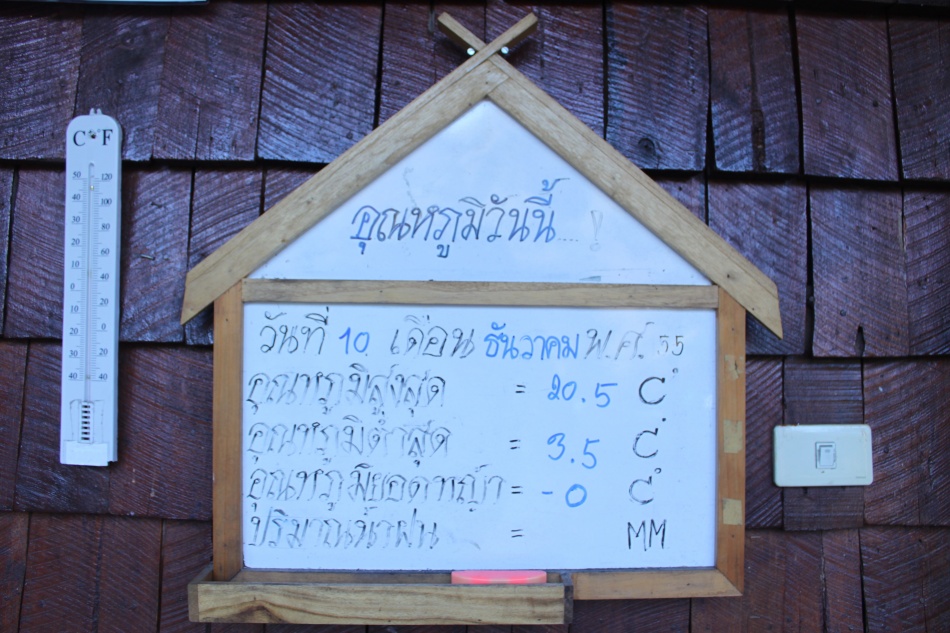 C°F
50 120
40 100
30 80
20 60
10 40
0 20
10 0
20
30 20
40 40
อุณหภูมิวันนี้....!
วันที่ 10 เดือน ธันวาคม พ.ศ. 55
อุณหภูมิสูงสุด = 20.5 C°
อุณหภูมิต่ำสุด = 3.5 C°
อุณหภูมิยอดหญ้า = -0 C°
ปริมาณน้ำฝน = MM